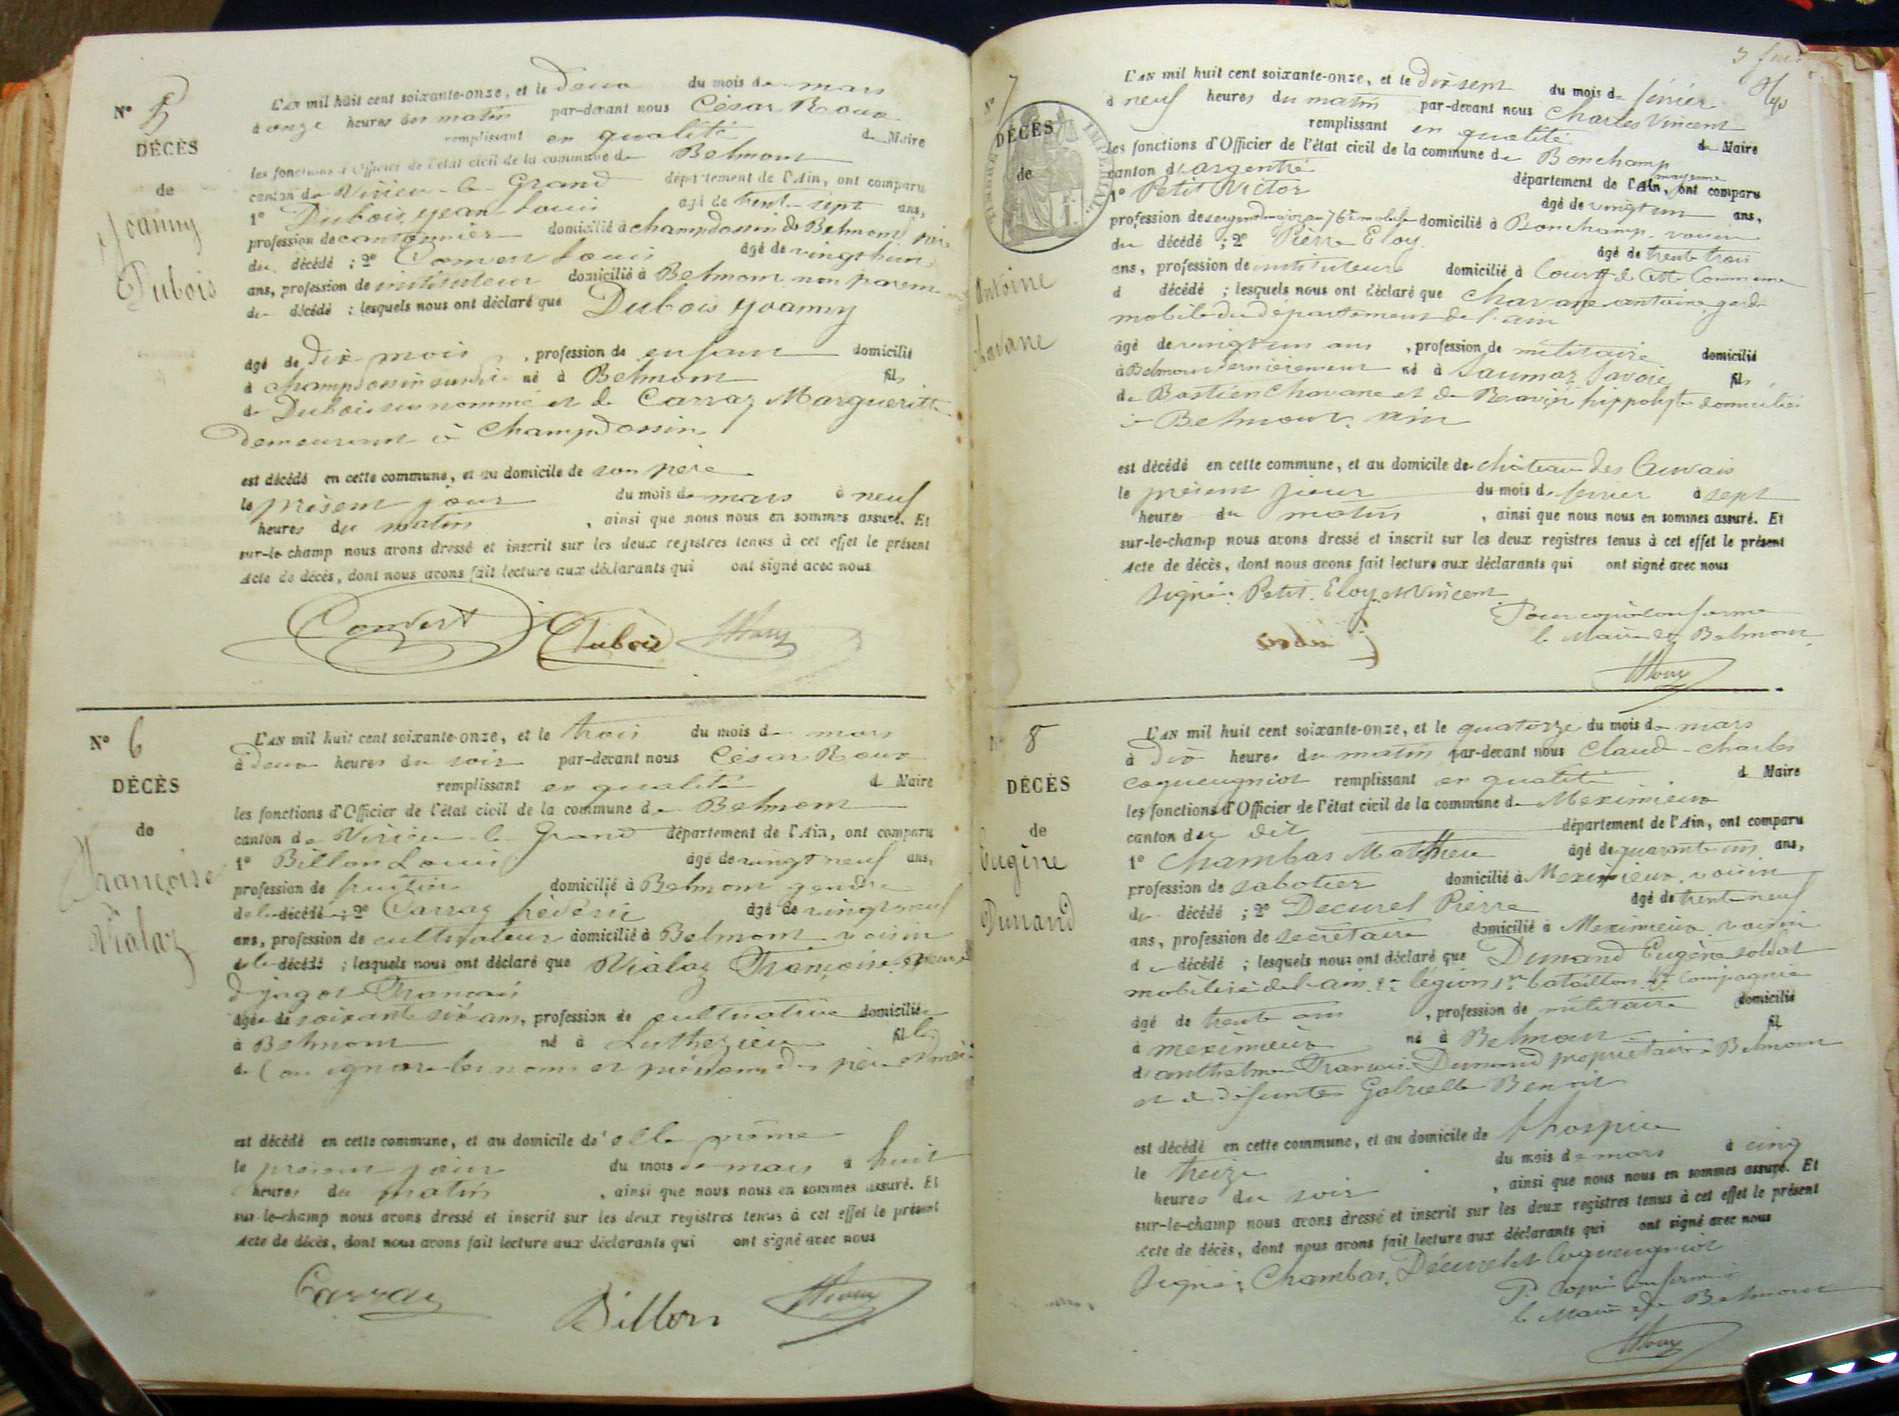 Nº 5
DÉCÈS
de
Joanny
Dubois
L'AN mil huit cent soixante-onze, et le deux du mois de mars
à onze heures du matin par-devant nous César Roux
remplissant en qualité de Maire
les fonctions d'Officier de l'état civil de la commune de Belmont
canton de Virieu-le-Grand département de l'Ain, ont comparu
1º Dubois jean Louis âgé de trente-sept ans,
profession de cantonnier domicilié à champdossin de Belmont
du décédé ; 2º Convert Louis âgé de vingt huit
ans, profession de instituteur domicilié à Belmont non parent
du décédé ; lesquels nous ont déclaré que Dubois Joanny
âgé de dix mois, profession de enfant domicilié
à champdossin né à Belmont fils
de Dubois sus nommé et de Carraz Marguerite
demeurant à Champdossin
est décédé en cette commune, et au domicile de son père
le présent jour du mois de mars à neuf
heures du matin, ainsi que nous nous en sommes assuré. Et
sur-le-champ nous avons dressé et inscrit sur les deux registres tenus à cet effet le présent
Acte de décès, dont nous avons fait lecture aux déclarants qui ont signé avec nous
Convert Dubois Roux
Nº 6
DÉCÈS
de
Françoise
Vialaz
L'AN mil huit cent soixante-onze, et le trois du mois de mars
à deux heures du soir par-devant nous César Roux
remplissant en qualité de Maire
les fonctions d'Officier de l'état civil de la commune de Belmont
canton de Virieu-le-Grand département de l'Ain, ont comparu
1º Billon Louis âgé de vingt neuf ans,
profession de fruitier domicilié à Belmont gendre
de la décédé ; 2º Carraz frédéric âgé de vingt neuf
ans, profession de cultivateur domicilié à Belmont voisin
de la décédé ; lesquels nous ont déclaré que Vialaz Françoise
François
âgé de soixante six ans, profession de cultivatrice domicilié
à Belmont né à Luthezieu fille
de (on ignore les noms et prénoms des père et mère
est décédé en cette commune, et au domicile de elle même
le présent jour du mois de mars à huit
heures du matin, ainsi que nous nous en sommes assuré. Et
sur-le-champ nous avons dressé et inscrit sur les deux registres tenus à cet effet le présent
Acte de décès, dont nous avons fait lecture aux déclarants qui ont signé avec nous
Carraz Billon Roux
Nº 7
DÉCÈS
de
Antoine
Chavane
L'AN mil huit cent soixante-onze, et le dix sept du mois de février
à neuf heures du matin par-devant nous Charles Vincent
remplissant en qualité de Maire
les fonctions d'Officier de l'état civil de la commune de Bonchamp
canton d'argentré département de l'Ain, mayenne ont comparu
1º Petit Victor âgé de vingt un ans,
profession de sergent major au 76e mobile domicilié à Bonchamp voisin
du décédé ; 2º Pierre Eloy âgé de trente trois
ans, profession de instituteur domicilié à commune
d décédé ; lesquels nous ont déclaré que Chavane antoine garde
mobile du département de l'ain
âgé de vingt un ans, profession de militaire domicilié
à Belmont dernièrement né à Savoie fils
de Bastien Chavane et de hippolyte domiciliés
à Belmont, ain
est décédé en cette commune, et au domicile de château des
le présent jour du mois de février à sept
heures du matin, ainsi que nous nous en sommes assuré. Et
sur-le-champ nous avons dressé et inscrit sur les deux registres tenus à cet effet le présent
Acte de décès, dont nous avons fait lecture aux déclarants qui ont signé avec nous
Signé: Petit, Eloy et Vincent
Pour copie conforme
le Maire de Belmont
Roux
Nº 8
DÉCÈS
de
Eugène
Dunand
L'AN mil huit cent soixante-onze, et le quatorze du mois de mars
à dix heures du matin par-devant nous Claude-Charles
Coqueugniot remplissant en qualité de Maire
les fonctions d'Officier de l'état civil de la commune de Meximieux
canton du dit département de l'Ain, ont comparu
1º Chambas Matthieu âgé de quarante un ans,
profession de sabotier domicilié à Meximieux, voisin
du décédé ; 2º Decurel Pierre âgé de trente neuf
ans, profession de secrétaire domicilié à Meximieux voisin
du décédé ; lesquels nous ont déclaré que Dunand Eugène soldat
mobilisé de l'ain légion bataillon compagnie
âgé de trente ans, profession de militaire domicilié
à Meximieux né à Belmont fil
d'anthelme François Dunand propriétaire à Belmont
et de défunte Gabrielle Benoit
est décédé en cette commune, et au domicile de l'hospice
le treize du mois de mars à cinq
heures du soir, ainsi que nous nous en sommes assuré. Et
sur-le-champ nous avons dressé et inscrit sur les deux registres tenus à cet effet le présent
Acte de décès, dont nous avons fait lecture aux déclarants qui ont signé avec nous
Signé: Chambas, Décurel et Coqueugniot
Pr Copie conforme
le Maire de Belmont
Roux